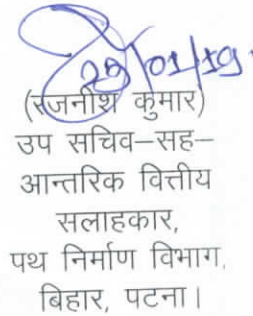 29/01/19
(रजनीश कुमार)
उप सचिव–सह–
आन्तरिक वित्तीय
सलाहकार,
पथ निर्माण विभाग,
बिहार, पटना।